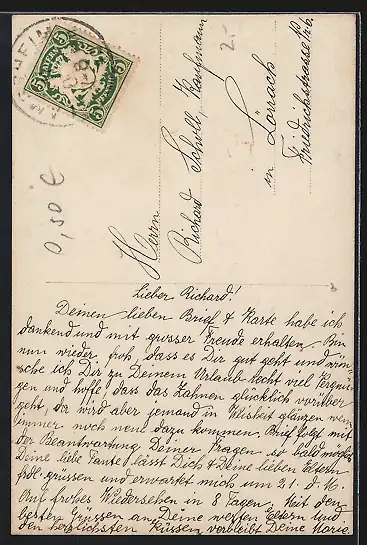 5 5
BAYERN
5 5
25
Herrn
Richard Scholl, Kaufmann
in Lörrach
Friedrichstrasse
0,50 €
Lieber Richard!
Deinen lieben Brief & Karte habe ich
dankend und mit grosser Freude erhalten. Bin
nun wieder froh, dass es Dir gut geht und wün-
sche ich Dir zu Deinem Urlaub recht viel Vergnü-
gen und hoffe, dass das Zahnen glücklich vorüber
geht, da wird aber jemand in Weisheit glänzen wenn
immer noch neue dazu kommen. Brief folgt mit
der Beantwartung Deiner Fragen so bald möglich.
Deine liebe Tante lässt Dich & Deine lieben Eltern
frdl. grüssen und erwartet mich um
Auf frohes Wiedersehen in 8 Tagen. Mit den
besten Grüssen an Deine werten Eltern und
den herzlichsten Küssen verbleibt Deine Marie.